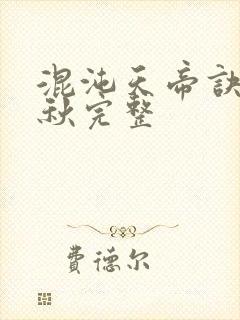 混沌天帝訣
秋完整
費德尔